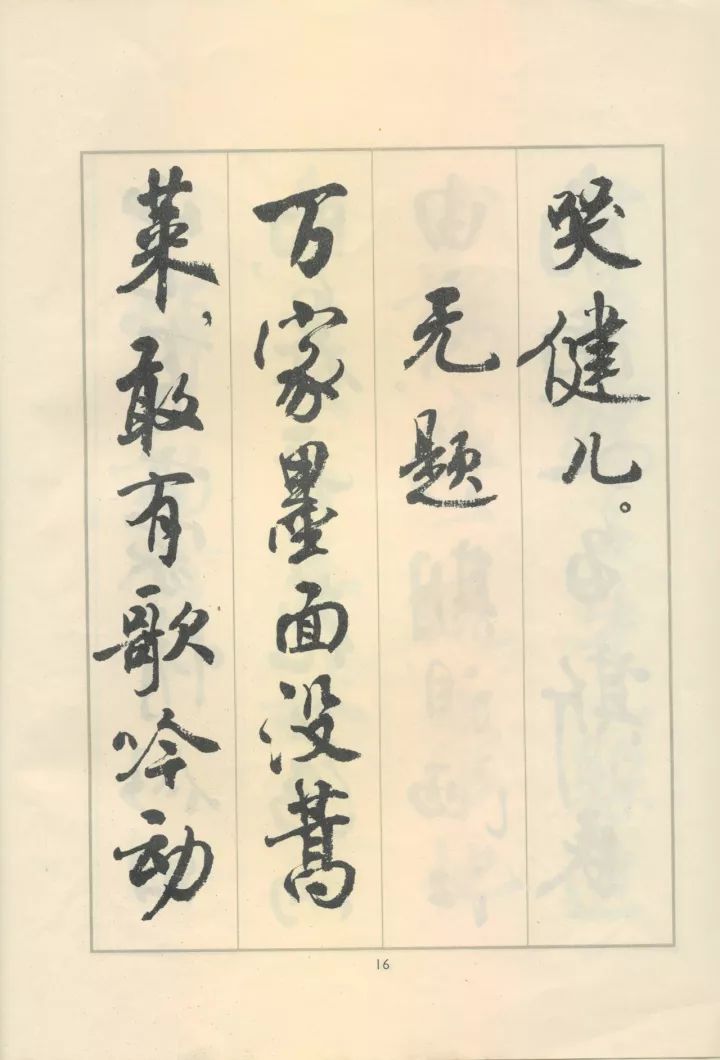 哭健儿。
无题
万家墨面没蒿
莱,敢有歌吟动
16